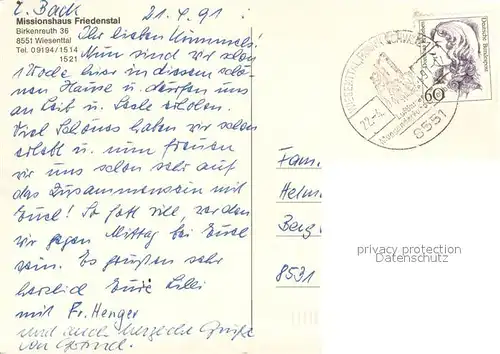 z. Back 21.4.91
Missionshaus Friedenstal
Birkenreuth 36
8551 Wiesenttal
Tel. 09194/1514
1521
Ihr lieben Hümmels!
Nun sind wir schon
1 Woche hier in diesem schö-
nen Hause u. dürfen uns
an Leib u. Seele erholen.
Viel Schönes haben wir schon
erlebt u. nun freuen
wir uns schon sehr auf
das Zusammensein mit
Euch! So Gott will, werden
wir gegen Mittag bei Euch
sein. Es grüßen sehr
herzlich Eure Lilli
mit Fr. Henger
und auch herzliche Grüße
von
Deutsche Bundespost
60
WIESENTTAL
22.-4.
8551
Fam.
Helm
Berg
8531
privacy protection
Datenschutz